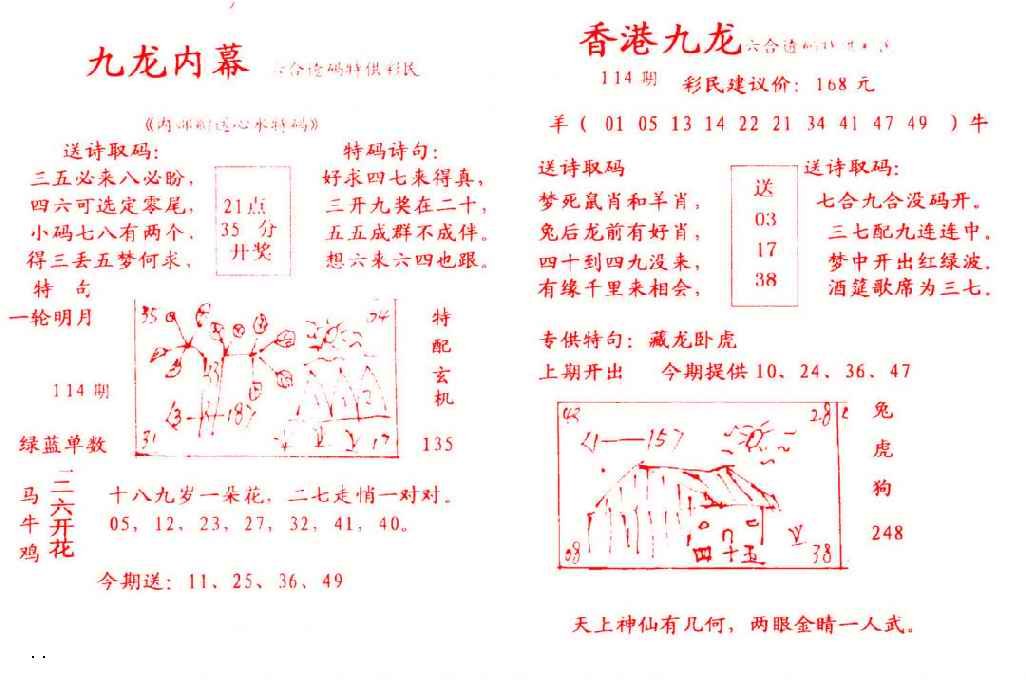 九龙内幕 六合透码特供彩民
送诗取码：
三五必来八必盼，
四六可选定零尾，
小码七八有两个，
得三丢五梦何求，
21点
35 分
开奖
特码诗句：
好求四七来得真，
三开九奖在二十，
五五成群不成伴。
想六来六四也跟。
特 句
一轮明月
114期
绿蓝单数
35
04
31
17
特
配
玄
机
135
马
牛
鸡
二六开花
十八九岁一朵花，二七走悄一对对。
05，12，23，27，32，41，40。
今期送：11、25、36、49
香港九龙
114期 彩民建议价：168元
羊（ 01 05 13 14 22 21 34 41 47 49 ）牛
送诗取码
梦死鼠肖和羊肖，
兔后龙前有好肖，
四十到四九没来，
有缘千里来相会，
送
03
17
38
送诗取码：
七合九合没码开。
三七配九连连中。
梦中开出红绿波．
酒筵歌席为三七．
专供特句：藏龙卧虎
上期开出 今期提供10、24、36、47
42
28
21——157
四十五
08
38
兔
虎
狗
248
天上神仙有几何，两眼金睛一人武。